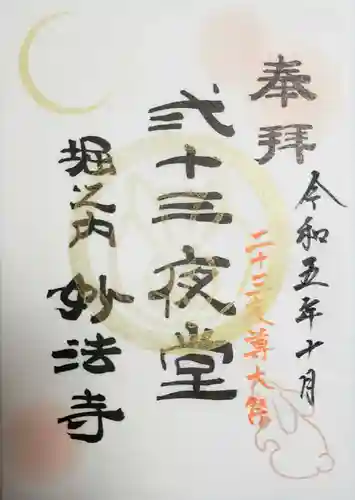 奉拝
令和五年十月
二十三夜尊大祭
弐十三夜堂
堀之内 妙法寺